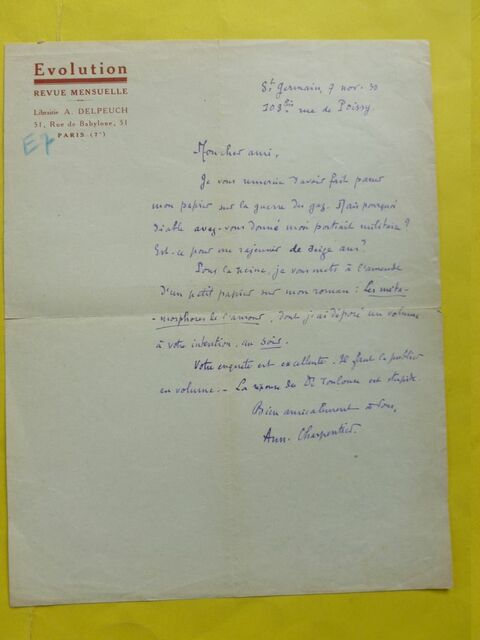 Evolution
REVUE MENSUELLE
Librairie A. DELPEUCH
51, Rue de Babylone, 51
PARIS (7e)
E7
St Germain, 7 nov. 30
108bis rue de Poissy
Mon cher ami,
Je vous remercie d'avoir fait passer
mon papier sur la guerre des gaz. Mais pourquoi
diable avez-vous donné mon portrait militaire?
Est-ce pour me rajeunir de seize ans?
Sous la peine, je vous mets à l'amende
d'un petit papier sur mon roman : Les méta-
-morphoses de l'amour, dont j'ai déposé un volume
à votre intention, au Soir.
Votre enquête est excellente. Il faut la publier
en volume. - La réponse du Dr Toulouse est stupide.
Bien amicalement à vous,
Arm. Charpentier.